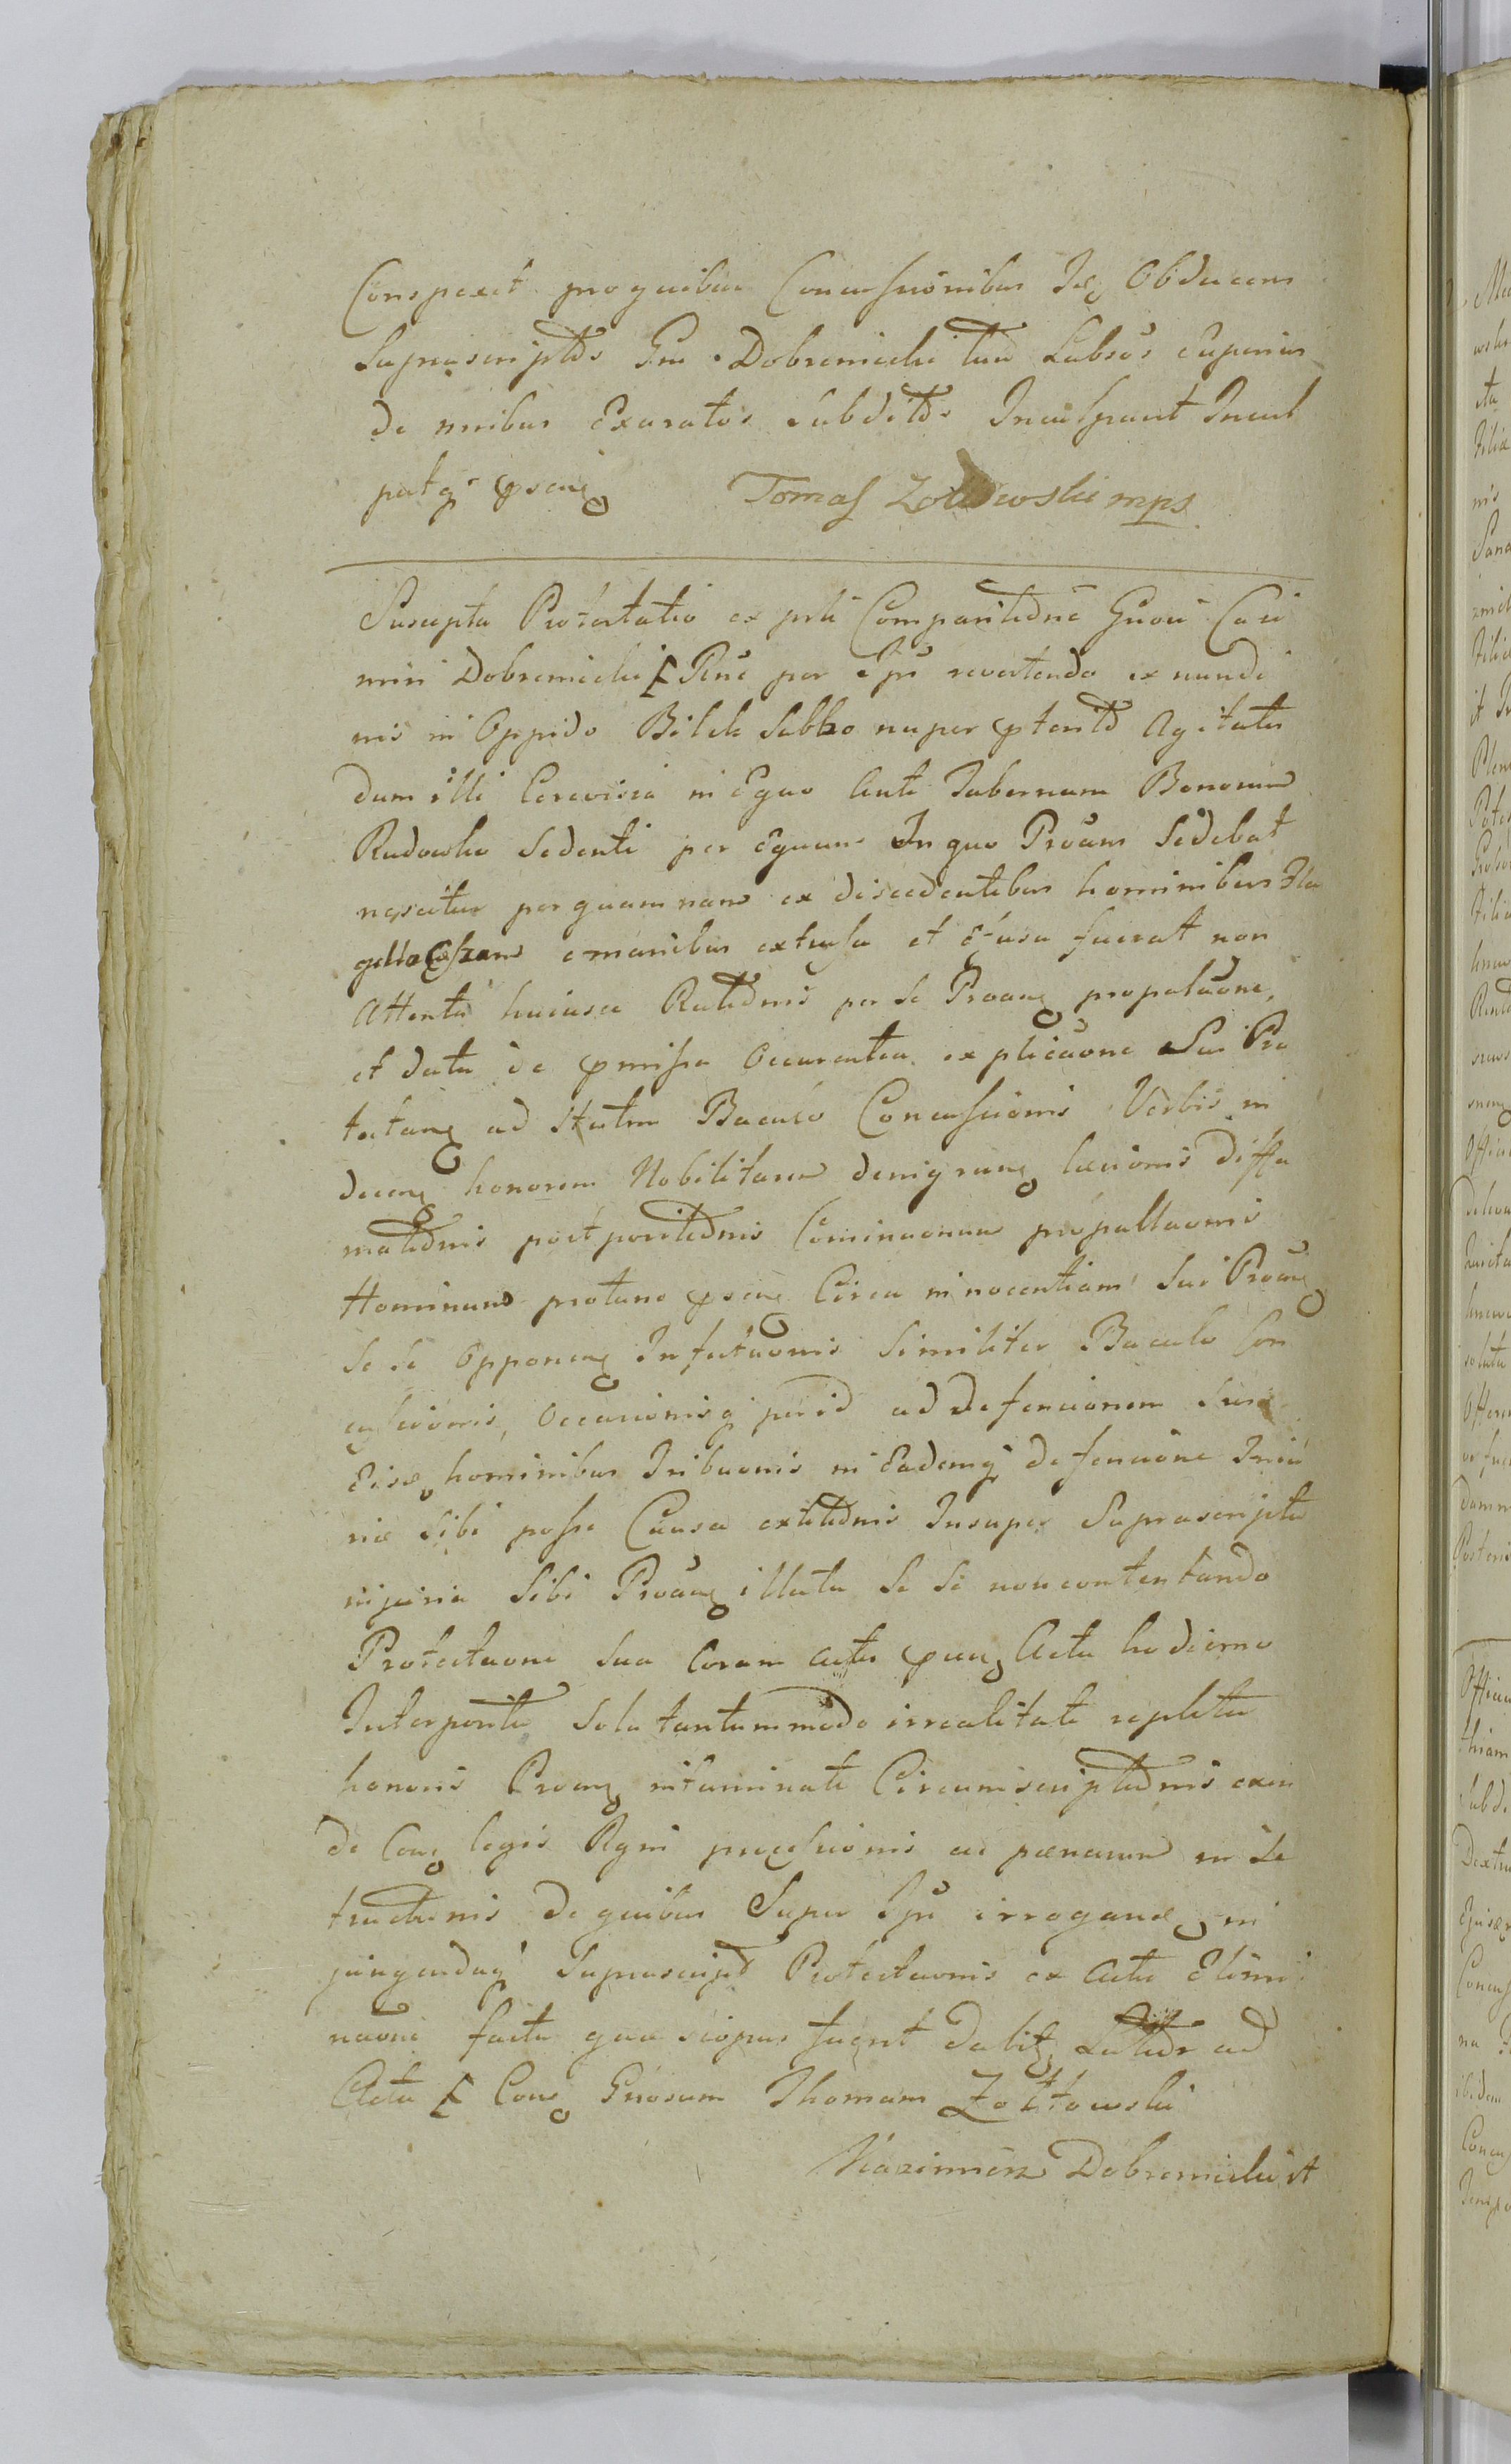 Conspexit pro quibus Concussionibus Se Obducens
Suprascriptos Gm Dobrzeniecki tum Labros cuperius
de nribus Exaratos Subditos Inculpavit Incul
patq pseng Tomasz Zołtowski mps
Suscepta Protestatio ex prti Comparitione Gnosi Casi
miri Dobrzeniecki Pine per Ipm revertendo ex nundi
nis in Oppido Bilsk Sabbo nuper pterito Agitatis
dum illi Cerevisia in Equo Ante Tabernam Bonorum
Rudowko Sedenti per Equum In quo Proans Sedebat
nescitur per quam nam ex discedentibus hominibus Fla
e manibus extrusa et Efusa fuerat non
Attenta huiusce Rationis per se Proang propalaone,
et data de pmissa Occurentia explicaone Sui Pro
testang ad Statim Baculo Concussionis Verbis in
deceng honorem Nobilitarem denigrang laesionis diffa
mationis post positionis Cominaonum propallaonis
Hominum protunc pseng Circa innocentiam Sui Proang
Se se Opponeng Infestaonis Similiter Baculo Con
cussionis, Occasionisq per id ad Defensionem Sui
Eisdem hominibus Tribuonis in Eademq defensione Iniu
riae Sibi posse Causa extitionis Insuper Suprascripta
injuria Sibi Proang illata Se Se non contentando
Protestaone sua Coram actis pseng Acta hodierno
Interposita Sola tantummodo irrealitate repleta
honoris Proang intaminati Circumscriptionis exin
de Cong legis Rgni processionis ad paenarum in se
tractionis de quibus Super Ipm irrogang in
jungendaq Suprascript Protestaonis ex Actis Elimi
naone facta qua si opus fuerit dabit Latior ad
Acta Cong Gnosum Thomam Zołtowski
Kazimierz Dobrzenieckit